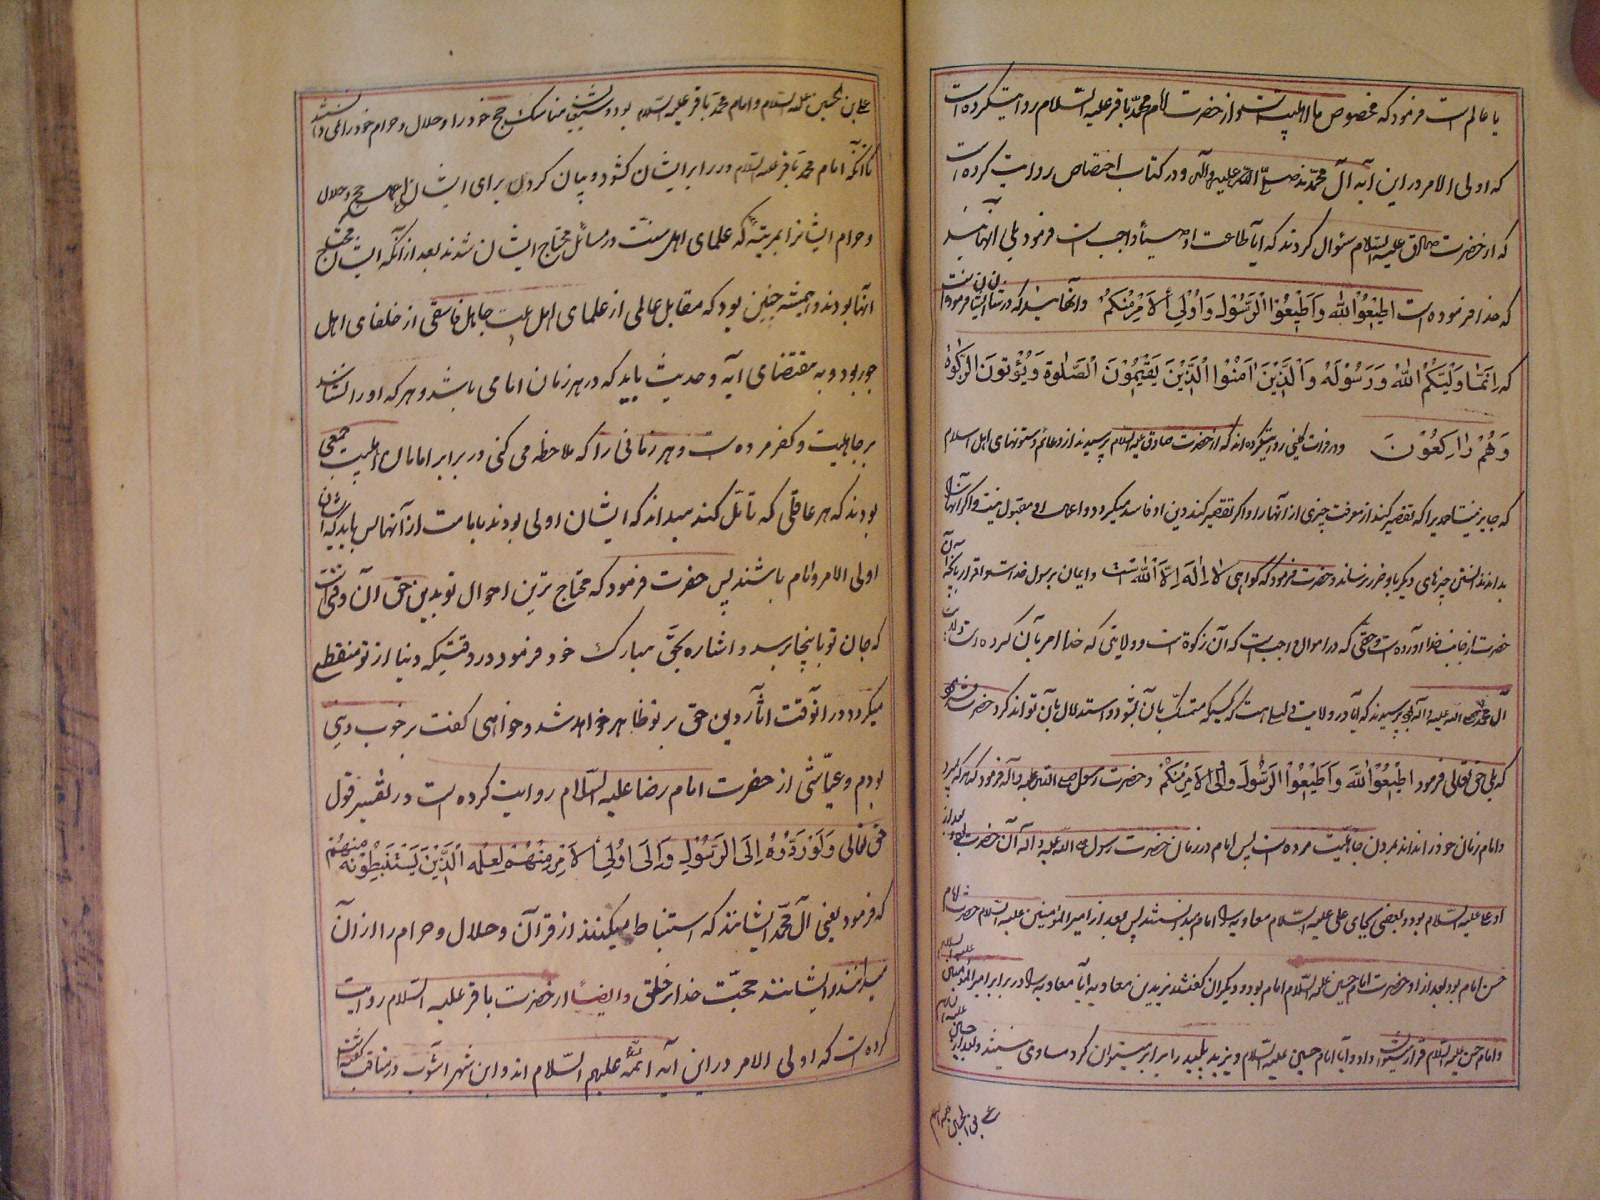 یا عالم است فرمود که مخصوص ما اهلبیت است و از حضرت امام محمد باقر علیه السلام روایت کرده است
که اولی الامر در این آیه آل محمدند صلی الله علیه و آله و در کتاب اختصاص روایت کرده است
که از حضرت صادق علیه السلام سؤال کردند که ایا طاعت اوصیأ واجب است فرمود بلی آنهایند
که خدا فرموده است اطیعوا الله و اطیعوا الرسول و اولی الامر منکم و آنهایند که در شأن ایشان فرموده است
که انما ولیکم الله و رسوله و الذین امنوا الذین یقیمون الصلوة و یؤتون الزکوة
و هم راکعون و در روایت کلینی روایت کرده اند که از حضرت صادق علیه السلام پرسیدند از دعائم و ستونهای اهل اسلام
که جایز نیست احدیرا که تقصیر کند از معرفت چیزی از آنها را و اگر تقصیر کند دین او فاسد میگردد و اعمال او مقبول نیست و اگر آنها را
بداند ندانستن چیزهای دیگر باو ضرر نرساند حضرت فرمود که گواهی لا اله الا الله است و ایمان برسول خداست و اقرار بآنچه آن
حضرت از جانب خدا آورده است و حقی که در اموال واجب است که آن زکوة است و ولایتی که خدا امر بآن کرده است
آل محمد صلی الله علیه و آله پرسیدند که آیا در ولایت دلیلی هست که کسیکه متمسک بآن شود و استدلال بآن تواند کرد حضرت فرمود
که بلی حق تعالی فرمود اطیعوا الله و اطیعوا الرسول و اولی الامر منکم و حضرت رسول صلی الله علیه و آله فرمود که هر که بمیرد
و امام زمان خود را نداند بمردن جاهلیت مرده است پس امام در زمان حضرت رسول صلی الله علیه و آله آن حضرت بود و بعد از
او علی علیه السلام بود و بعضی بجای علی علیه السلام معاویه را امام میدانستند پس بعد از امیر المؤمنین علیه السلام حضرت امام
حسن امام بود بعد از او حضرت امام حسین علیه السلام امام بود و دیگران گفتند یزید بن معاویه آیا معاویه را در برابر امیر المؤمنین علیه السلام
و امام حسن علیه السلام قرار میتوان داد و آیا امام حسین علیه السلام و یزید پلید را برابر میتوان کرد مساوی نیستند و بعد از حسین علیه السلام
علی بن الحسین علیه السلام
علی بن الحسین علیه السلام و امام محمد باقر علیه السلام بود و شیعیان مناسک حج خود را و حلال و حرام خود را نمی دانستند
تا آنکه امام محمد باقر علیه السلام در را برایشان کشود و بیان کرد برای ایشان حج و حلال
و حرام ایشانرا بمرتبه که علمای اهل سنت در مسائل محتاج ایشان شدند بعد از آنکه ایشان محتاج
آنها بودند و همیشه چنین بود که مقابل عالمی از علمای اهل بیت جاهل فاسقی از خلفای اهل
جور بود و به مقتضای آیه و حدیث باید که در هر زمان امامی باشد و هر که او را نشناسد
بر جاهلیت و کفر مرده است و هر زمانی را که ملاحظه می کنی در برابر امامان اهلبیت جمعی
بودند که هر عاقلی که تأمل کند میداند که ایشان اولی بودند بامامت از آنها پس باید که ایشان
اولی الامر و امام باشند پس حضرت فرمود که محتاج ترین احوال تو بدین حق آن وقتست
که جان تو باینجا برسد و اشاره بحلق مبارک خود فرمود و در وقتیکه دنیا از تو منقطع
میگردد در انوقت اثآر دین حق بر تو ظاهر خواهد شد و خواهی گفت بر خوب دینی
بودم و عیاشی از حضرت امام رضا علیه السلام روایت کرده است در تفسیر قول
حق تعالی و لو ردوه الی الرسول و الی اولی الامر منهم لعلمه الذین یستنبطونه منهم
که فرمود یعنی آل محمد ایشانند که استنباط میکنند از قرآن و حلال و حرام را از آن
میدانند و ایشانند حجت خدا بر خلق و ایضاً از حضرت باقر علیه السلام روایت
کرده است که اولی الامر در این آیه ائمه علیهم السلام اند و ابن شهر اشوب در مناقب گفته است